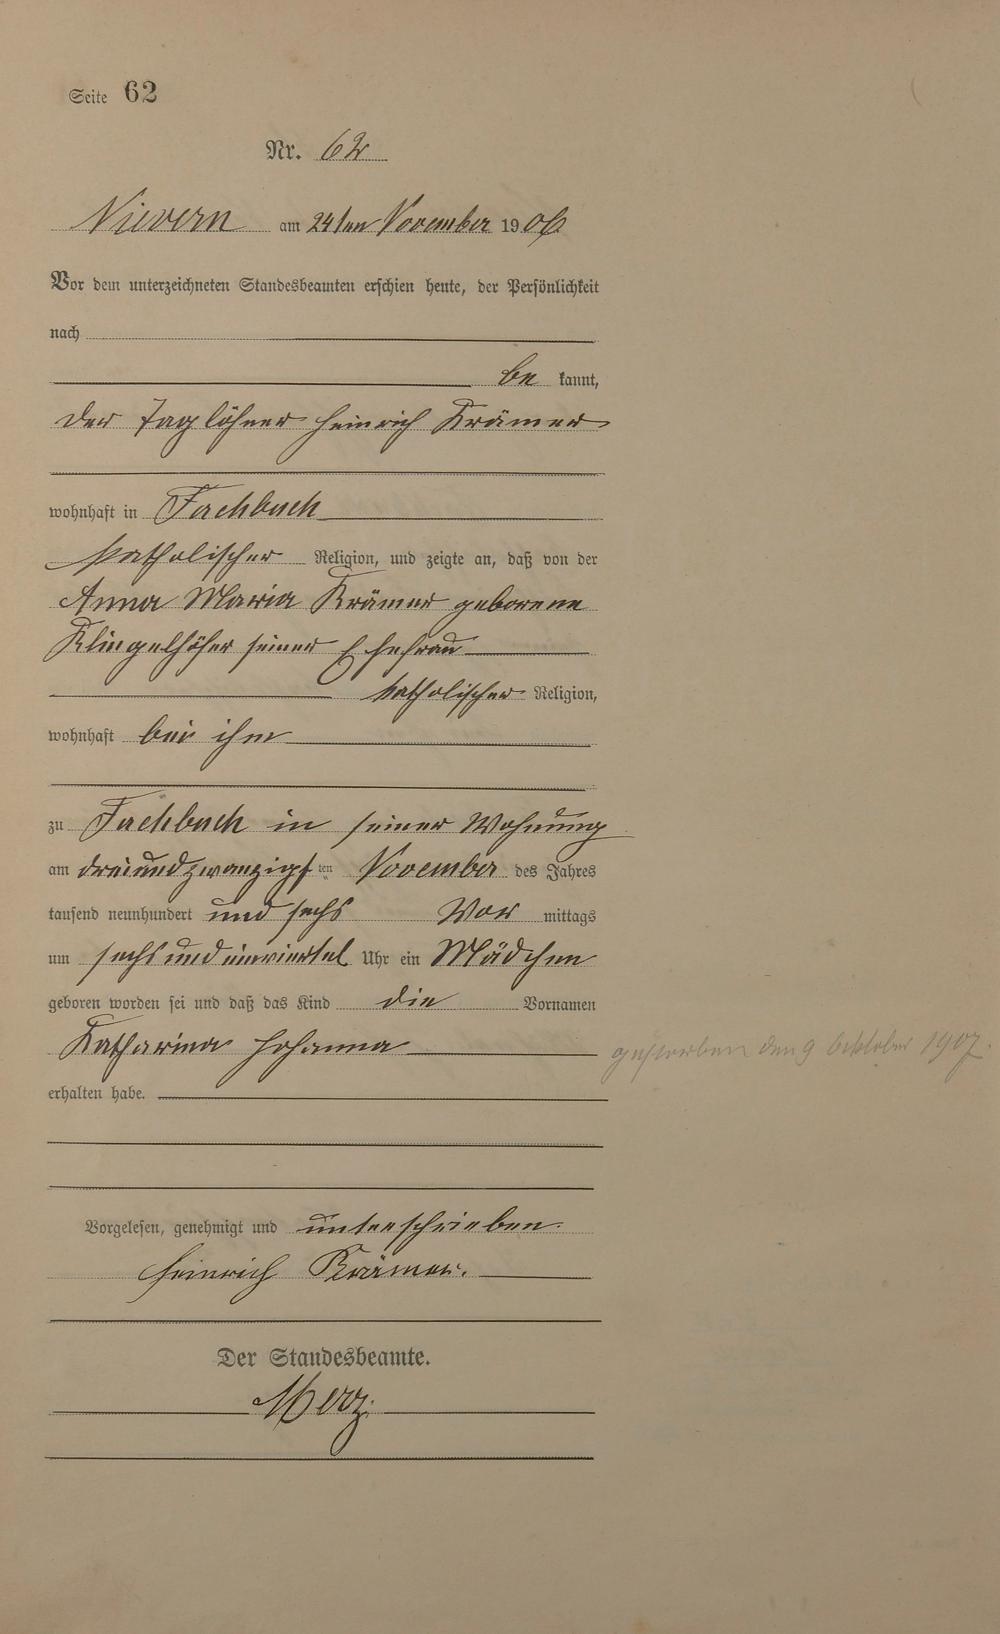 Seite 62
Nr. 62
Nievern am 24ten November 1906
Vor dem unterzeichneten Standesbeamten erschien heute, der Persönlichkeit
nach
be kannt,
der Taglöhner Heinrich Krämer
wohnhaft in Fachbach
katholischer Religion, und zeigte an, daß von der
Anna Maria Krämer geborene
Klingelhöfer seiner Ehefrau
katholischer Religion,
wohnhaft bei ihm
zu Fachbach in seiner Wohnung
am dreiundzwanzigsten November des Jahres
tausend neunhundert und sechs Vor mittags
um sechs und einviertel Uhr ein Mädchen
geboren worden sei und daß das Kind die Vornamen
Katharina Johanna
gestorben den 9 Oktober 1907.
erhalten habe.
Vorgelesen, genehmigt und unterschrieben.
Heinrich Krämer.
Der Standesbeamte.
Merz.